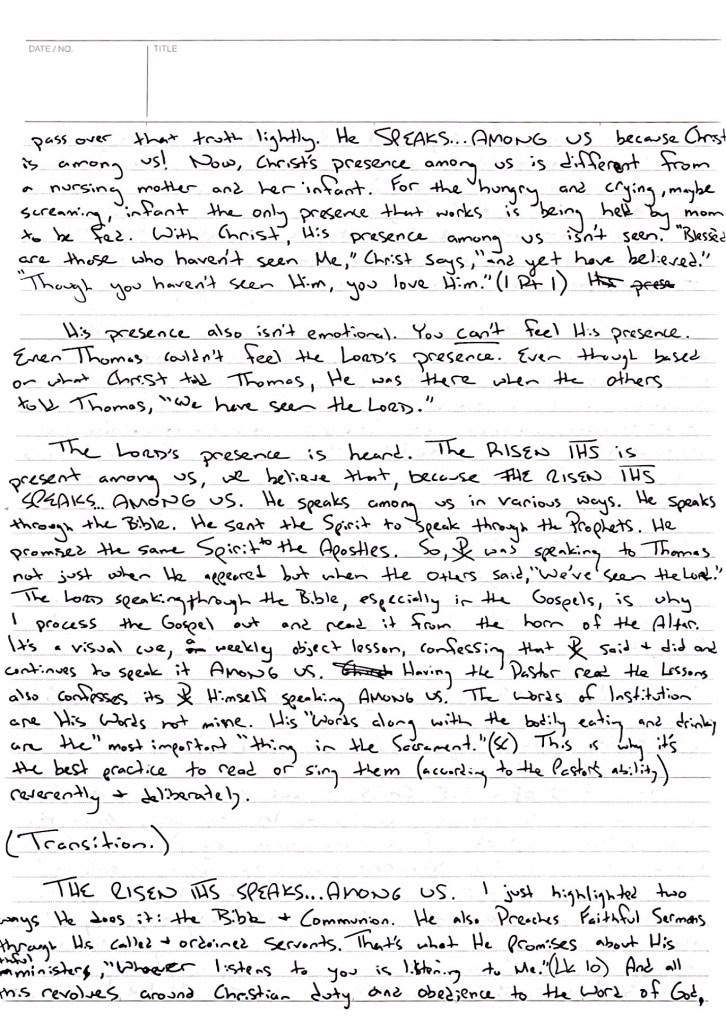 DATE / NO. TITLE
pass over that truth lightly. He SPEAKS... AMONG US because Christ
is among us! Now, Christ's presence among us is different from
a nursing mother and her infant. For the hungry and crying, maybe
screaming, infant the only presence that works is being held by mom
to be fed. With Christ, His presence among us isn't seen. "Blessed
are those who haven't seen Me," Christ says, "and yet have believed."
"Though you haven't seen Him, you love Him." (1 Pt 1) His prese
His presence also isn't emotional. You can't feel His presence.
Even Thomas couldn't feel the LORD'S presence. Even though based
on what Christ told Thomas, He was there when the others
told Thomas, "We have seen the LORD."
The LORD'S presence is heard. The RISEN IHS is
present among us, we believe that, because THE RISEN IHS
SPEAKS... AMONG US. He speaks among us in various ways. He speaks
through the Bible. He sent the Spirit to speak through the Prophets. He
promised the same Spirit to the Apostles. So, ☧ was speaking to Thomas
not just when He appeared but when the others said, "We've seen the Lord."
The LORD speaking through the Bible, especially in the Gospels, is why
I process the Gospel out and read it from the horn of the Altar.
It's a visual cue, a weekly object lesson, confessing that ☧ said + did and
continues to speak it AMONG US. Having the Pastor read the Lessons
also confesses its ☧ Himself speaking AMONG US. The Words of Institution
are His Words not mine. His "Words along with the bodily eating and drinking
are the" most important "thing in the Sacrament." (SC) This is why it's
the best practice to read or sing them (according to the Pastor's ability)
reverently + deliberately.
(Transition.)
THE RISEN IHS SPEAKS... AMONG US. I just highlighted two
ways He does it: the Bible + Communion. He also Preaches Faithful Sermons
through His called + ordained servants. That's what He Promises about His
faithful ministers, "Whoever listens to you is listening to Me." (Lk 10) And all
this revolves around Christian duty and obedience to the Word of God,